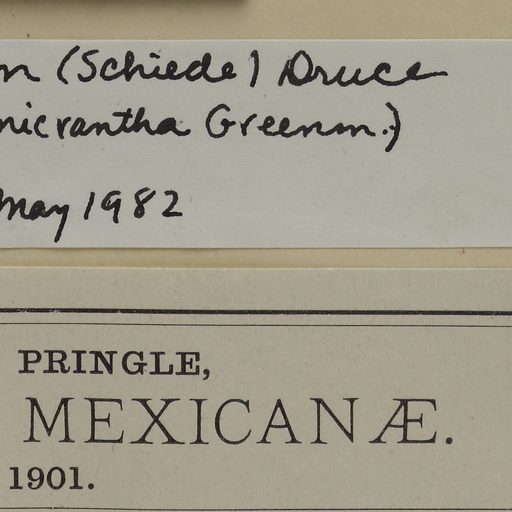 (Schiede) Druce
micrantha Greenm.)
May 1982
PRINGLE,
MEXICANÆ.
1901.